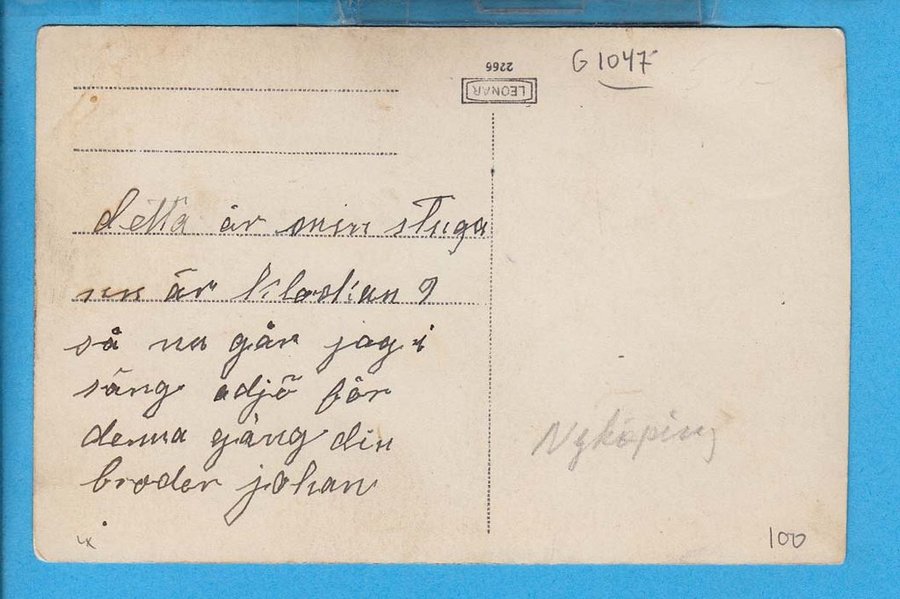 G 1047
2266
LEONAR
detta är min stuga
nu är klockan 9
så nu går jag i
säng adjö för
denna gång din
broder johan
Nyköping
100